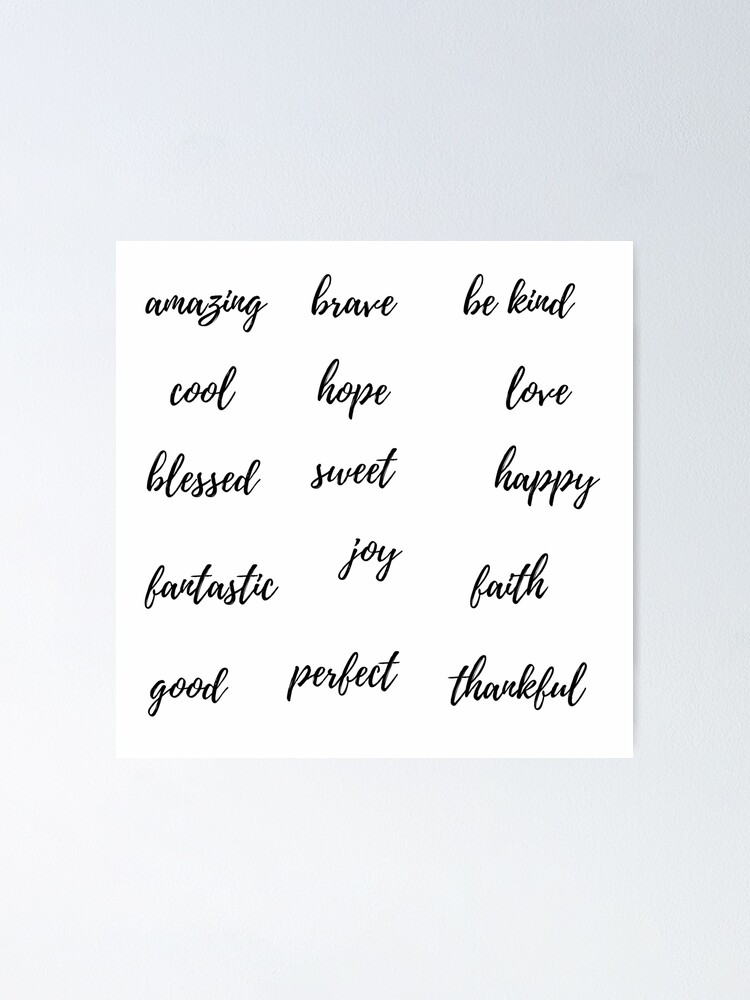 amazing brave be kind
cool hope love
blessed sweet happy
fantastic joy faith
good perfect thankful